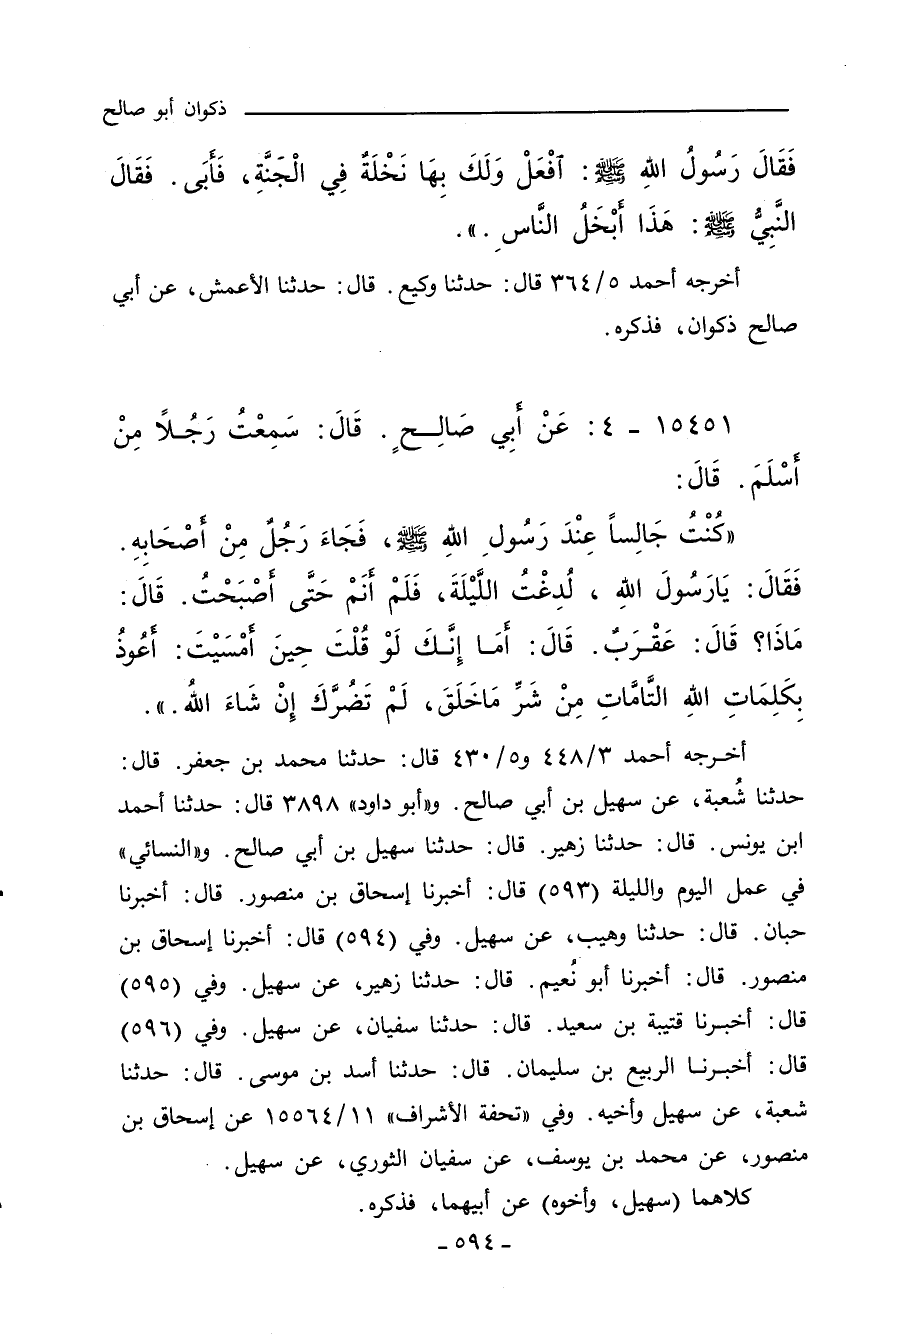 ذكوان أبو صالح
فَقَالَ رَسُولُ اللهِ ﷺ: آفْعَلْ وَلَكَ بِهَا نَخْلَةٌ فِي الْجَنَّةِ، فَأَبَى. فَقَالَ
النَّبِيُّ ﷺ: هَذَا أَبْخَلُ النَّاسِ.».
أخرجه أحمد ٣٦٤/٥ قال: حدثنا وكيع. قال: حدثنا الأعمش، عن أبي
صالح ذكوان، فذكره.
١٥٤٥١ - ٤: عَنْ أَبِي صَالِحٍ. قَالَ: سَمِعْتُ رَجُلاً مِنْ
أَسْلَمَ. قَالَ:
«كُنْتُ جَالِساً عِنْدَ رَسُولِ اللهِ ﷺ، فَجَاءَ رَجُلٌ مِنْ أَصْحَابِهِ.
فَقَالَ: يَارَسُولَ اللهِ، لُدِغْتُ اللَّيْلَةَ، فَلَمْ أَنَمْ حَتَّى أَصْبَحْتُ. قَالَ:
مَاذَا؟ قَالَ: عَقْرَبٌ. قَالَ: أَمَا إِنَّكَ لَوْ قُلْتَ حِينَ أَمْسَيْتَ: أَعُوذُ
بِكَلِمَاتِ اللهِ التَّامَّاتِ مِنْ شَرِّ مَاخَلَقَ، لَمْ تَضُرَّكَ إِنْ شَاءَ اللهُ.».
أخرجه أحمد ٤٤٨/٣ و٤٣٠/٥ قال: حدثنا محمد بن جعفر. قال:
حدثنا شُعبة، عن سهيل بن أبي صالح. و«أبو داود» ٣٨٩٨ قال: حدثنا أحمد
ابن يونس. قال: حدثنا زهير. قال: حدثنا سهيل بن أبي صالح. و«النسائي»
في عمل اليوم والليلة (٥٩٣) قال: أخبرنا إسحاق بن منصور. قال: أخبرنا
حبان. قال: حدثنا وهيب، عن سهيل. وفي (٥٩٤) قال: أخبرنا إسحاق بن
منصور. قال: أخبرنا أبو نُعيم. قال: حدثنا زهير، عن سهيل. وفي (٥٩٥)
قال: أخبرنا قتيبة بن سعيد. قال: حدثنا سفيان، عن سهيل. وفي (٥٩٦)
قال: أخبرنا الربيع بن سليمان. قال: حدثنا أسد بن موسى. قال: حدثنا
شعبة، عن سهيل وأخيه. وفي «تحفة الأشراف» ١٥٥٦٤/١١ عن إسحاق بن
منصور، عن محمد بن يوسف، عن سفيان الثوري، عن سهيل.
كلاهما (سهيل، وأخوه) عن أبيهما، فذكره.
- ٥٩٤ -